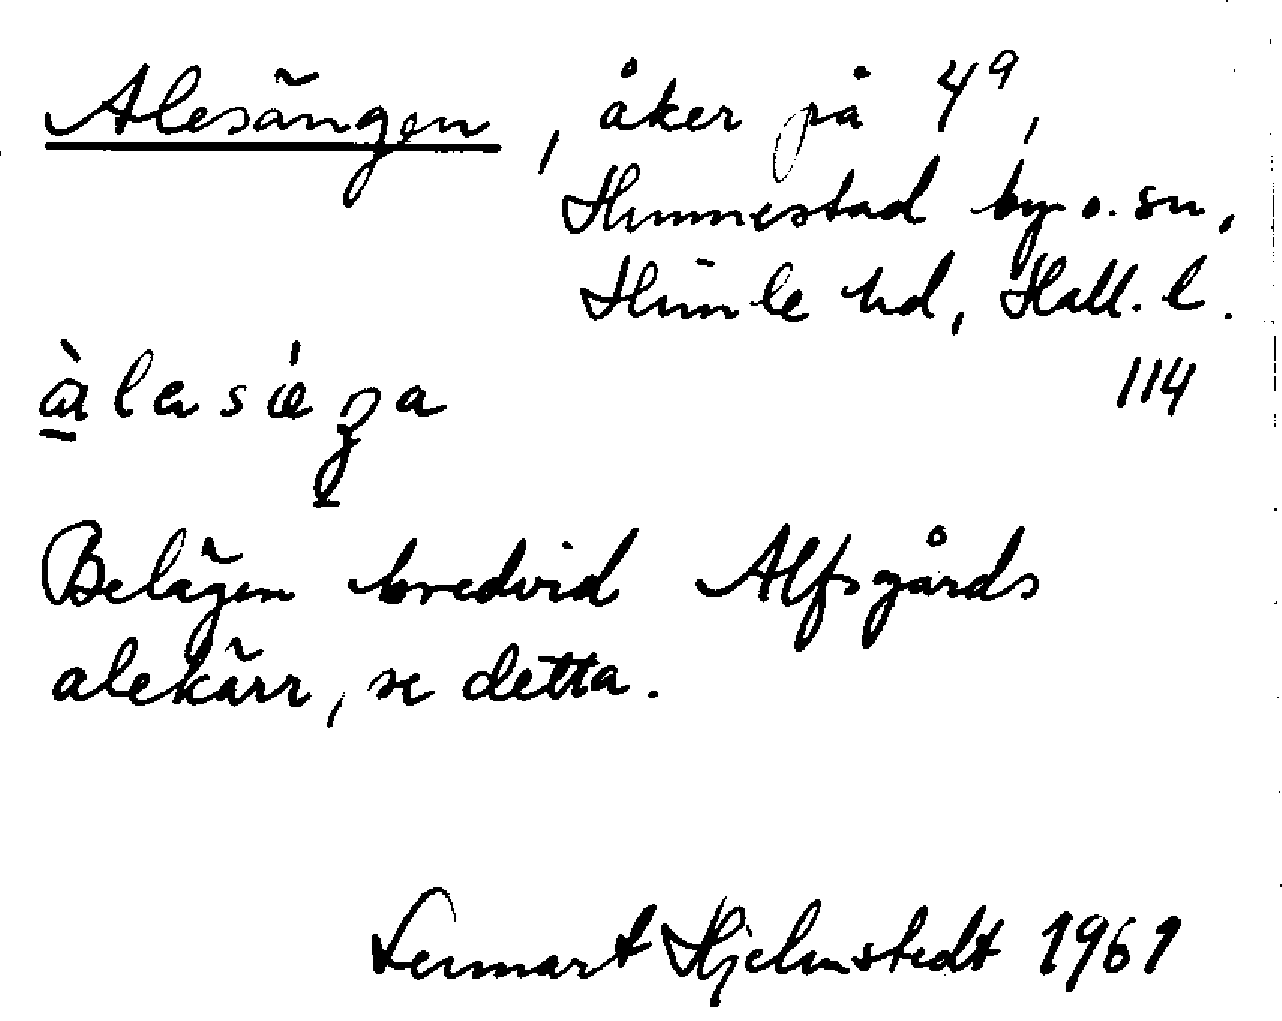 Alesängen, åker på 4⁹,
Hunnestad by o. sn,
Himle hd, Hall. l.
114
Belägen bredvid Alfsgårds
alekärr, se detta.
Lennart Hjelmstedt 1961